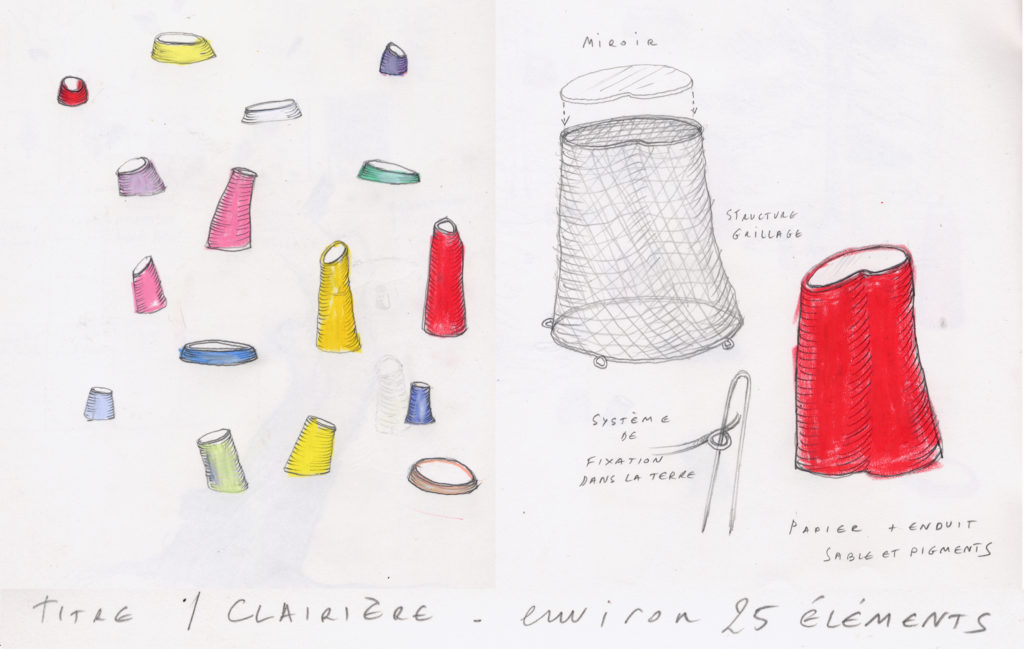 MIROIR
STRUCTURE
GRILLAGE
SYSTÈME
DE
FIXATION
DANS LA TERRE
PAPIER + ENDUIT
SABLE ET PIGMENTS
TITRE / CLAIRIÈRE - environ 25 ÉLÉMENTS